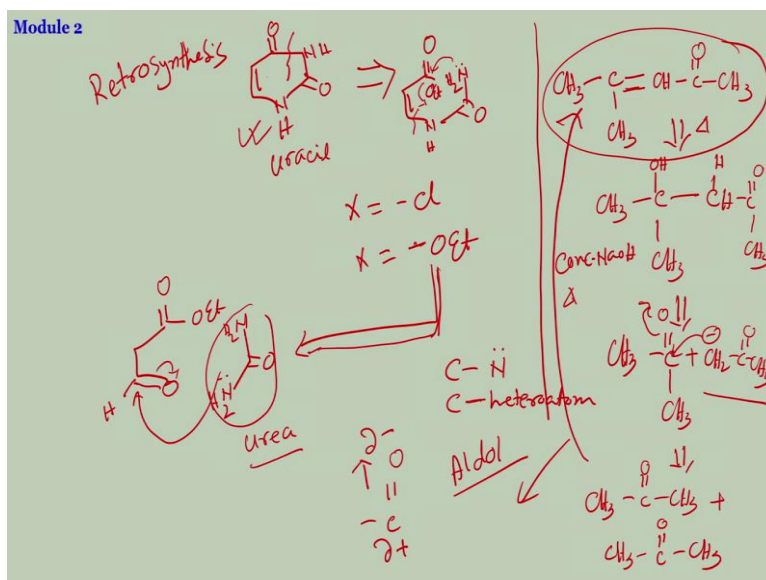 Module 2
Retrosynthesis
O
NH
O
N
H
uracil
O
H₂N̈
O
N
H
X = -Cl
X = -OEt
O
OEt
H₂N
O
O
H
H₂N̈
urea
C - N̈
C - heteroatom
Aldol
∂-
O
- C
∂+
O
CH₃ - C = CH - C - CH₃
CH₃
Δ
OH H O
CH₃ - C - CH - C
CH₃ CH₃
Conc. NaOH
Δ
O O
CH₃ - C + CH₂ - C - CH₃
CH₃
O
CH₃ - C - CH₃ +
O
CH₃ - C - CH₃